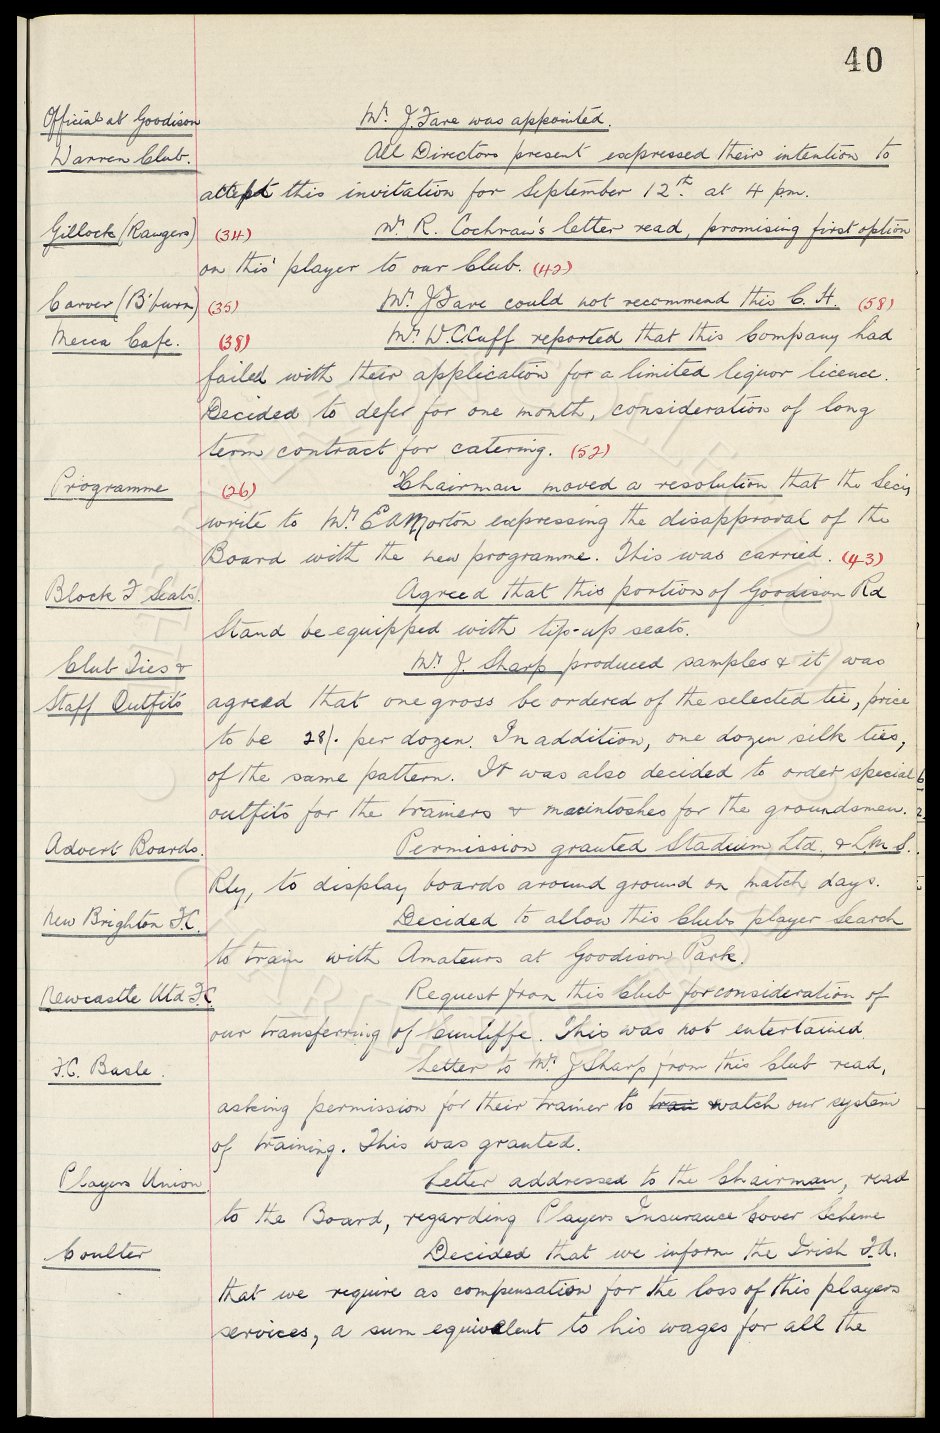 40
Official at Goodison Mr. J. Fare was appointed.
Warren Club. All Directors present expressed their intention to
accept this invitation for September 12th at 4 pm.
Gillock (Rangers) (34) Mr R. Cochran's letter read, promising first option
on this player to our Club. (42)
Carver (B'burn) (35) Mr. J Fare could not recommend this C.H. (58)
Mecca Cafe. (38) Mr. W.C. Cuff reported that this Company had
failed with their application for a limited liquor licence.
Decided to defer for one month, consideration of long
term contract for catering. (52)
Programme (26) Chairman moved a resolution that the Secy
write to Mr. E A Morton expressing the disapproval of the
Board with the new programme. This was carried. (43)
Block F Seats. Agreed that this portion of Goodison Rd
Stand be equipped with tip-up seats.
Club Ties & Mr J. Sharp produced samples & it was
Staff Outfits agreed that one gross be ordered of the selected tie, price
to be 28/- per dozen. In addition, one dozen silk ties,
of the same pattern. It was also decided to order special
outfits for the trainers & macintoshes for the groundsmen.
Advert Boards. Permission granted Stadium Ltd. & L.M.S.
Rly, to display boards around ground on match days.
New Brighton F.C. Decided to allow this Clubs player Search
to train with Amateurs at Goodison Park.
Newcastle Utd F.C. Request from this Club for consideration of
our transferring of Cunliffe. This was not entertained
F.C. Basle. Letter to Mr. J Sharp from this Club read,
asking permission for their trainer to train watch our system
of training. This was granted.
Players Union. Letter addressed to the Chairman, read
to the Board, regarding Players Insurance Cover Scheme
Coulter Decided that we inform the Irish F.A.
that we require as compensation for the loss of this players
services, a sum equivalent to his wages for all the